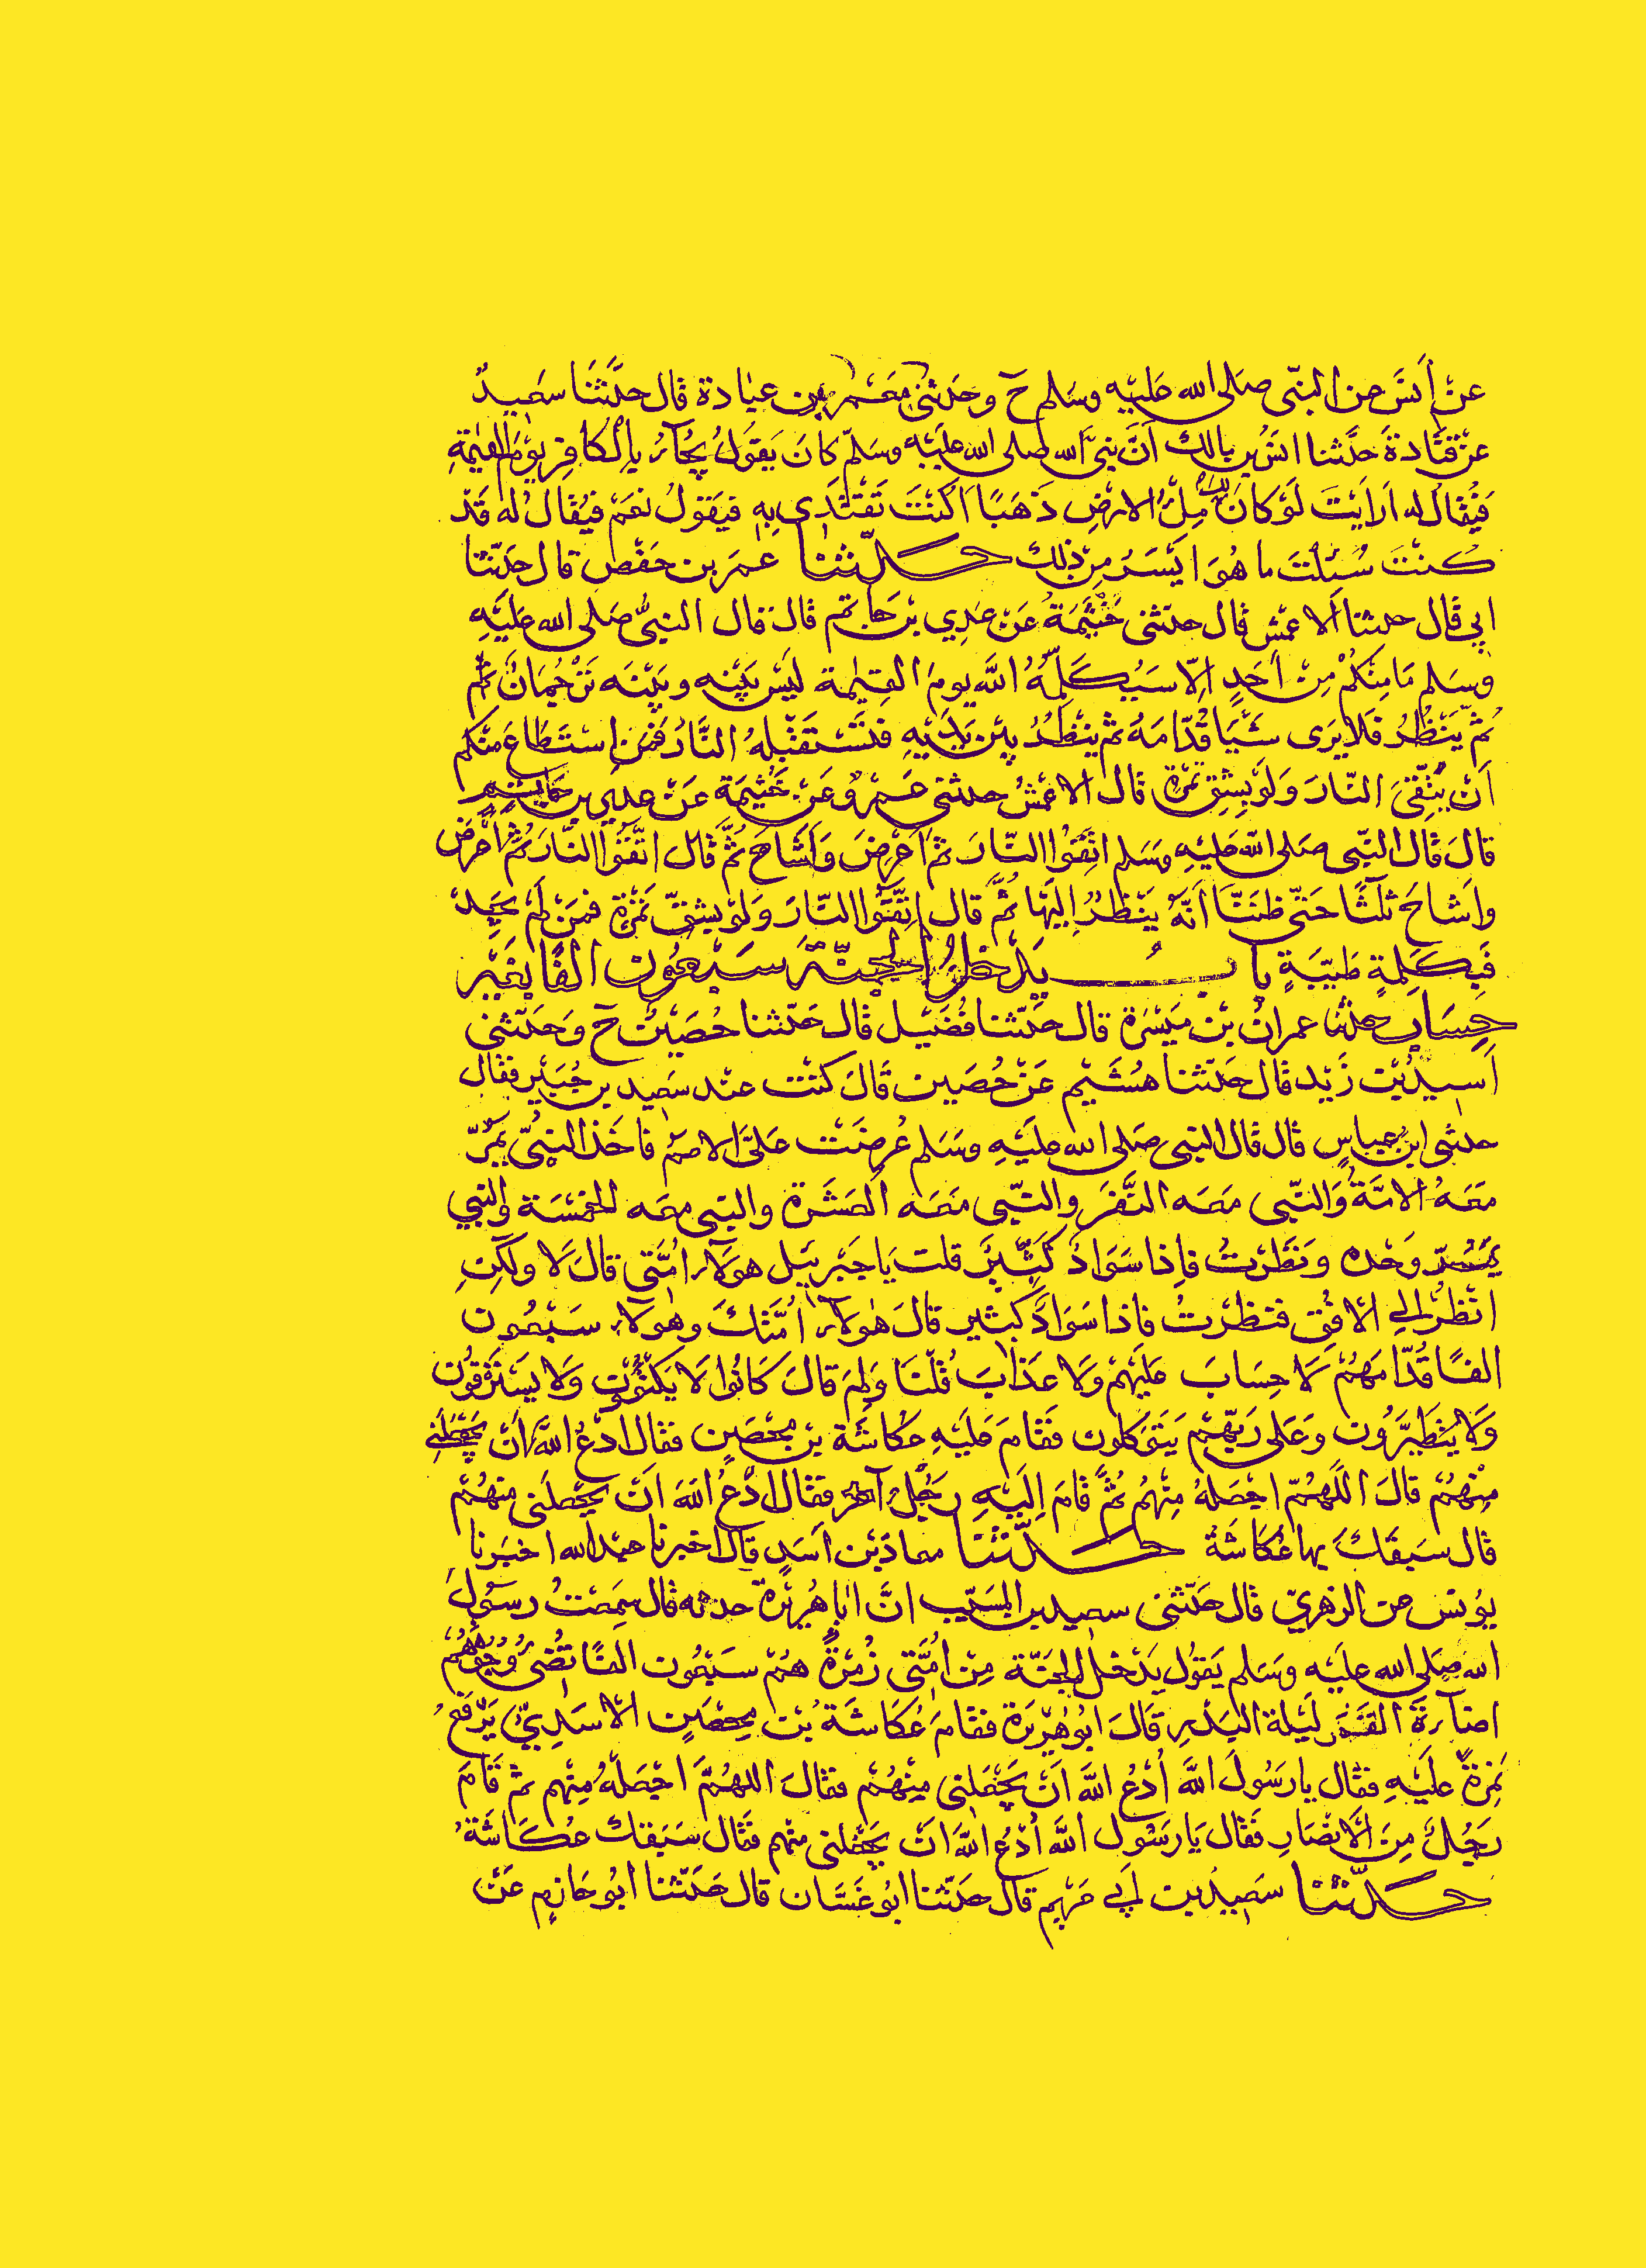 عَنْ أَنَسٍ عن النبّى صَلى الله عَليْه وسَلم حَ وحَدثنى مَعْمَر بن عبادة قال حَدَّثَنَا سَعِيدٌ
عَنْ قتَادةَ حَدَّثنا انسُ بن مالك اَنَّ نبىَّ الله صلى الله عَليْه وسَلّم كانَ يَقوُلُ يُجَآءُ بِالكافِرِ يوَمَ القيٰمةِ
فَيُقَالُ له اَرَاَيْتَ لَوْ كانَ لك مِلْءُ الارْضِ ذَهَبًا اَكُنْتَ تَفْتَدِى بِهِ فيَقولُ نَعَمْ فيُقَالُ له قَدْ
كُنتَ سُئلْتَ ما هُوَ ايْسَرُ مِنْ ذلِك حَدّثنا عمَر بن حَفْص قال حَدّثنا
ابِي قال حدثنا الاعمش قال حدّثنى خَيْثَمَةُ عَنْ عَدِي بن حَاتم قالَ قال النبىُّ صَلى الله عَليْهِ
وَسَلم مَا مِنكُمْ مِنْ اَحَدٍ اِلّا سَيُكَلِّمُهُ اللهُ يومَ القيٰمة ليَس بَيْنه وبَيْنَه تَرْجُمَانٌ
ثمّ يَنْظُرُ فَلا يرَى شَيْاً قُدّامَهُ ثم ينظُرُ بيْن يَدَيْهِ فتَسْتَقْبِلهُ النَّارُ فَمَنِ اِستَطَاعَ منكم
اَنْ يَتّقىَ النّارَ وَلَوْ بِشِقِ تمْرَةٍ قال الاعمشُ حدثنى عَمْرٌو عَنْ خَيْثمَةَ عَنْ عدِي بن حَاتمٍ
قالَ قالَ النبّى صَلى الله عَليْهِ وَسَلم اتقُوا النّارَ ثم اَعْرضَ وَاَشَاحَ ثمَّ قال اتّقُوا النّارَ ثمَّ اَعْرَضَ
واَشاحَ ثلٰثًا حَتّى ظنَنّا اَنّهُ يَنْظُرُ اِليْهَا ثُمَّ قال اتّقُوا النّارَ وَلوْ بشقّ تَمْرَةٍ فَمنْ لَمْ يَجِدْ
فَبِكَلِمةٍ طَيّبَةٍ بابُ يَدْخلُ الجنّةَ سَبْعُون الفًا بغَيْر
حِسَابٍ حدثنا عمرانُ بن مَيْسَرَة قال حَدّثنا فُضَيْل قالَ حَدّثنا حُصَيْنٌ حَ وَحَدّثنى
اَسيدُ بن زَيْد قال حَدّثنا هُشَيْم عَنْ حُصَيْن قَالَ كنْتُ عند سَعيد بن جُبَيْر فقال
حدثنى ابن عباسٍ قال قالَ النبى صَلى الله عليْهِ وسَلم عُرِضَتْ عَلىَّ الامَمُ فاخَذَ النبىُّ يَمُرُّ
مَعَهُ الامّةُ وَالنّبى مَعَه النّفَرُ والنّبى مَعَه العَشَرَة والنبى معَه الخمْسَة والنبي
يَمُرّ وَحْده وَنَظَرْتُ فاِذا سَوَادٌ كَثيْرٌ قلت يَا جَبْريٓيل هٰولَآءِ اُمَّتى قالَ لَا ولٰكِنِ
انظُرْ اِلي الافُقِ فنظرْتُ فاذا سَوَادٌ كَثير قالَ هٰولآءِ اُمّتُكَ وهٰولَآءِ سَبْعُون
الفًا قُدّامَهُمْ لَا حِسَابَ عَليْهِمْ وَلَا عَذَابَ قُلْتُ وَلِمَ قالَ كَانُوا لَا يَكْتَوُونَ وَلَا يَسْتَرْقُونَ
وَلَا يَتَطَيَّرُونَ وَعَلى رَبّهِمْ يَتَوَكلون فَقَامَ عَليْهِ عُكاشَة بن مِحْصَنٍ فقال ادْعُ اللهَ اَنْ يَجْعَلَنِي
مِنْهُمْ قالَ اللهُمّ اجْعَلهُ مِنْهُم ثُمَّ قامَ اِليْهِ رَجُلٌ آخر فقال ادْعُ اللهَ اَنْ يَجْعَلَنى مِنهُمْ
قال سَبَقَكَ بها عُكَاشَةُ حَدّثنا معاذ بْن اَسَدٍ قال اخبرنا عبد الله اخبَرنا
يوُنسُ عن الزهري قال حَدّثنى سعيد بن المسَيّب انَّ ابا هُرَيْرَة حدثه قال سَمِعْتُ رسوُلَ
الله صَلى الله عليْه وسَلم يَقوُل يَدْخل الجنّة مِنْ اُمّتى زُمْرَةٌ هُمْ سَبْعُون الفًا تُضِىُ وُجُوهُهُمْ
اضآءَةَ القَمَر ليْلَة البَدْرِ قالَ ابُو هُرَيْرَة فقامَ عُكاشَة بْن مِحْصَنٍ الاسَدِيُّ يَرْفَعُ
نَمِرَةً عليْهِ فقال يا رسُولَ اللهَ اُدْعُ اللهَ اَنْ يَجْعَلنى مِنْهُمْ فقالَ اللهُمَّ اجْعَلهُ مِنْهم ثم قَامَ
رَجُلٌ مِنَ الَانصَارِ فَقال يَا رسُول اللهَ اُدْعُ اللهَ اَنْ يَجْعَلنى منهم فقال سَبَقك عُكاشَةُ
حَدّثنا سعيد بن اَبي مَرْيم قال حَدّثنا ابُو غَسَّان قال حَدّثنا ابُو حَازمٍ عَنْ